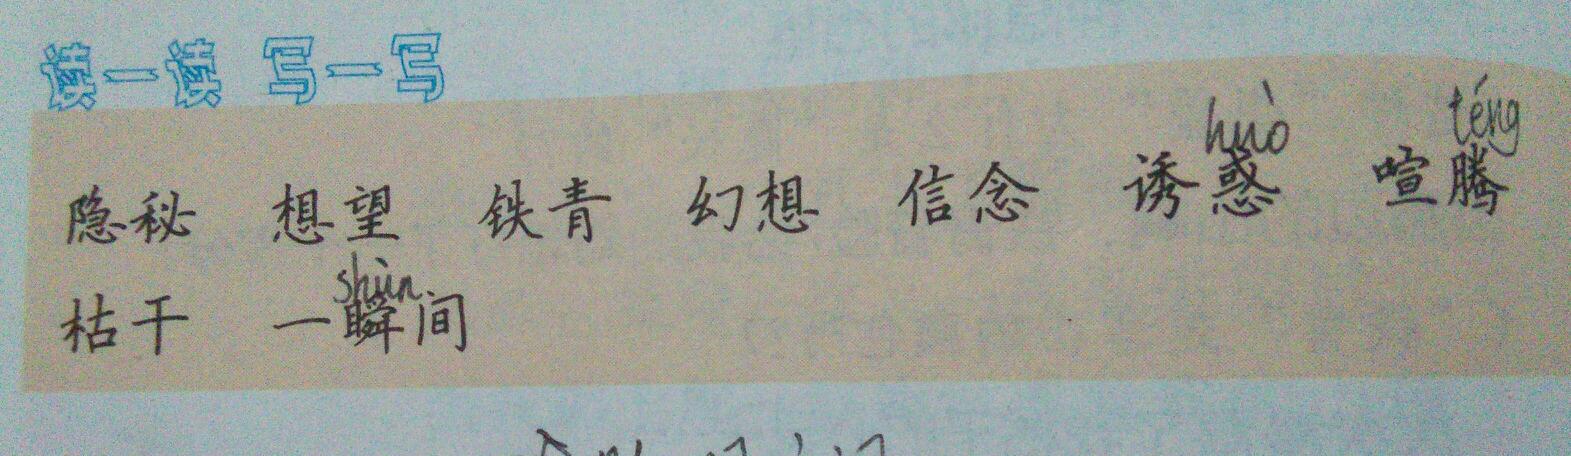 读一读 写一写
huò téng
隐秘 想望 铁青 幻想 信念 诱惑 喧腾
shùn
枯干 一瞬间